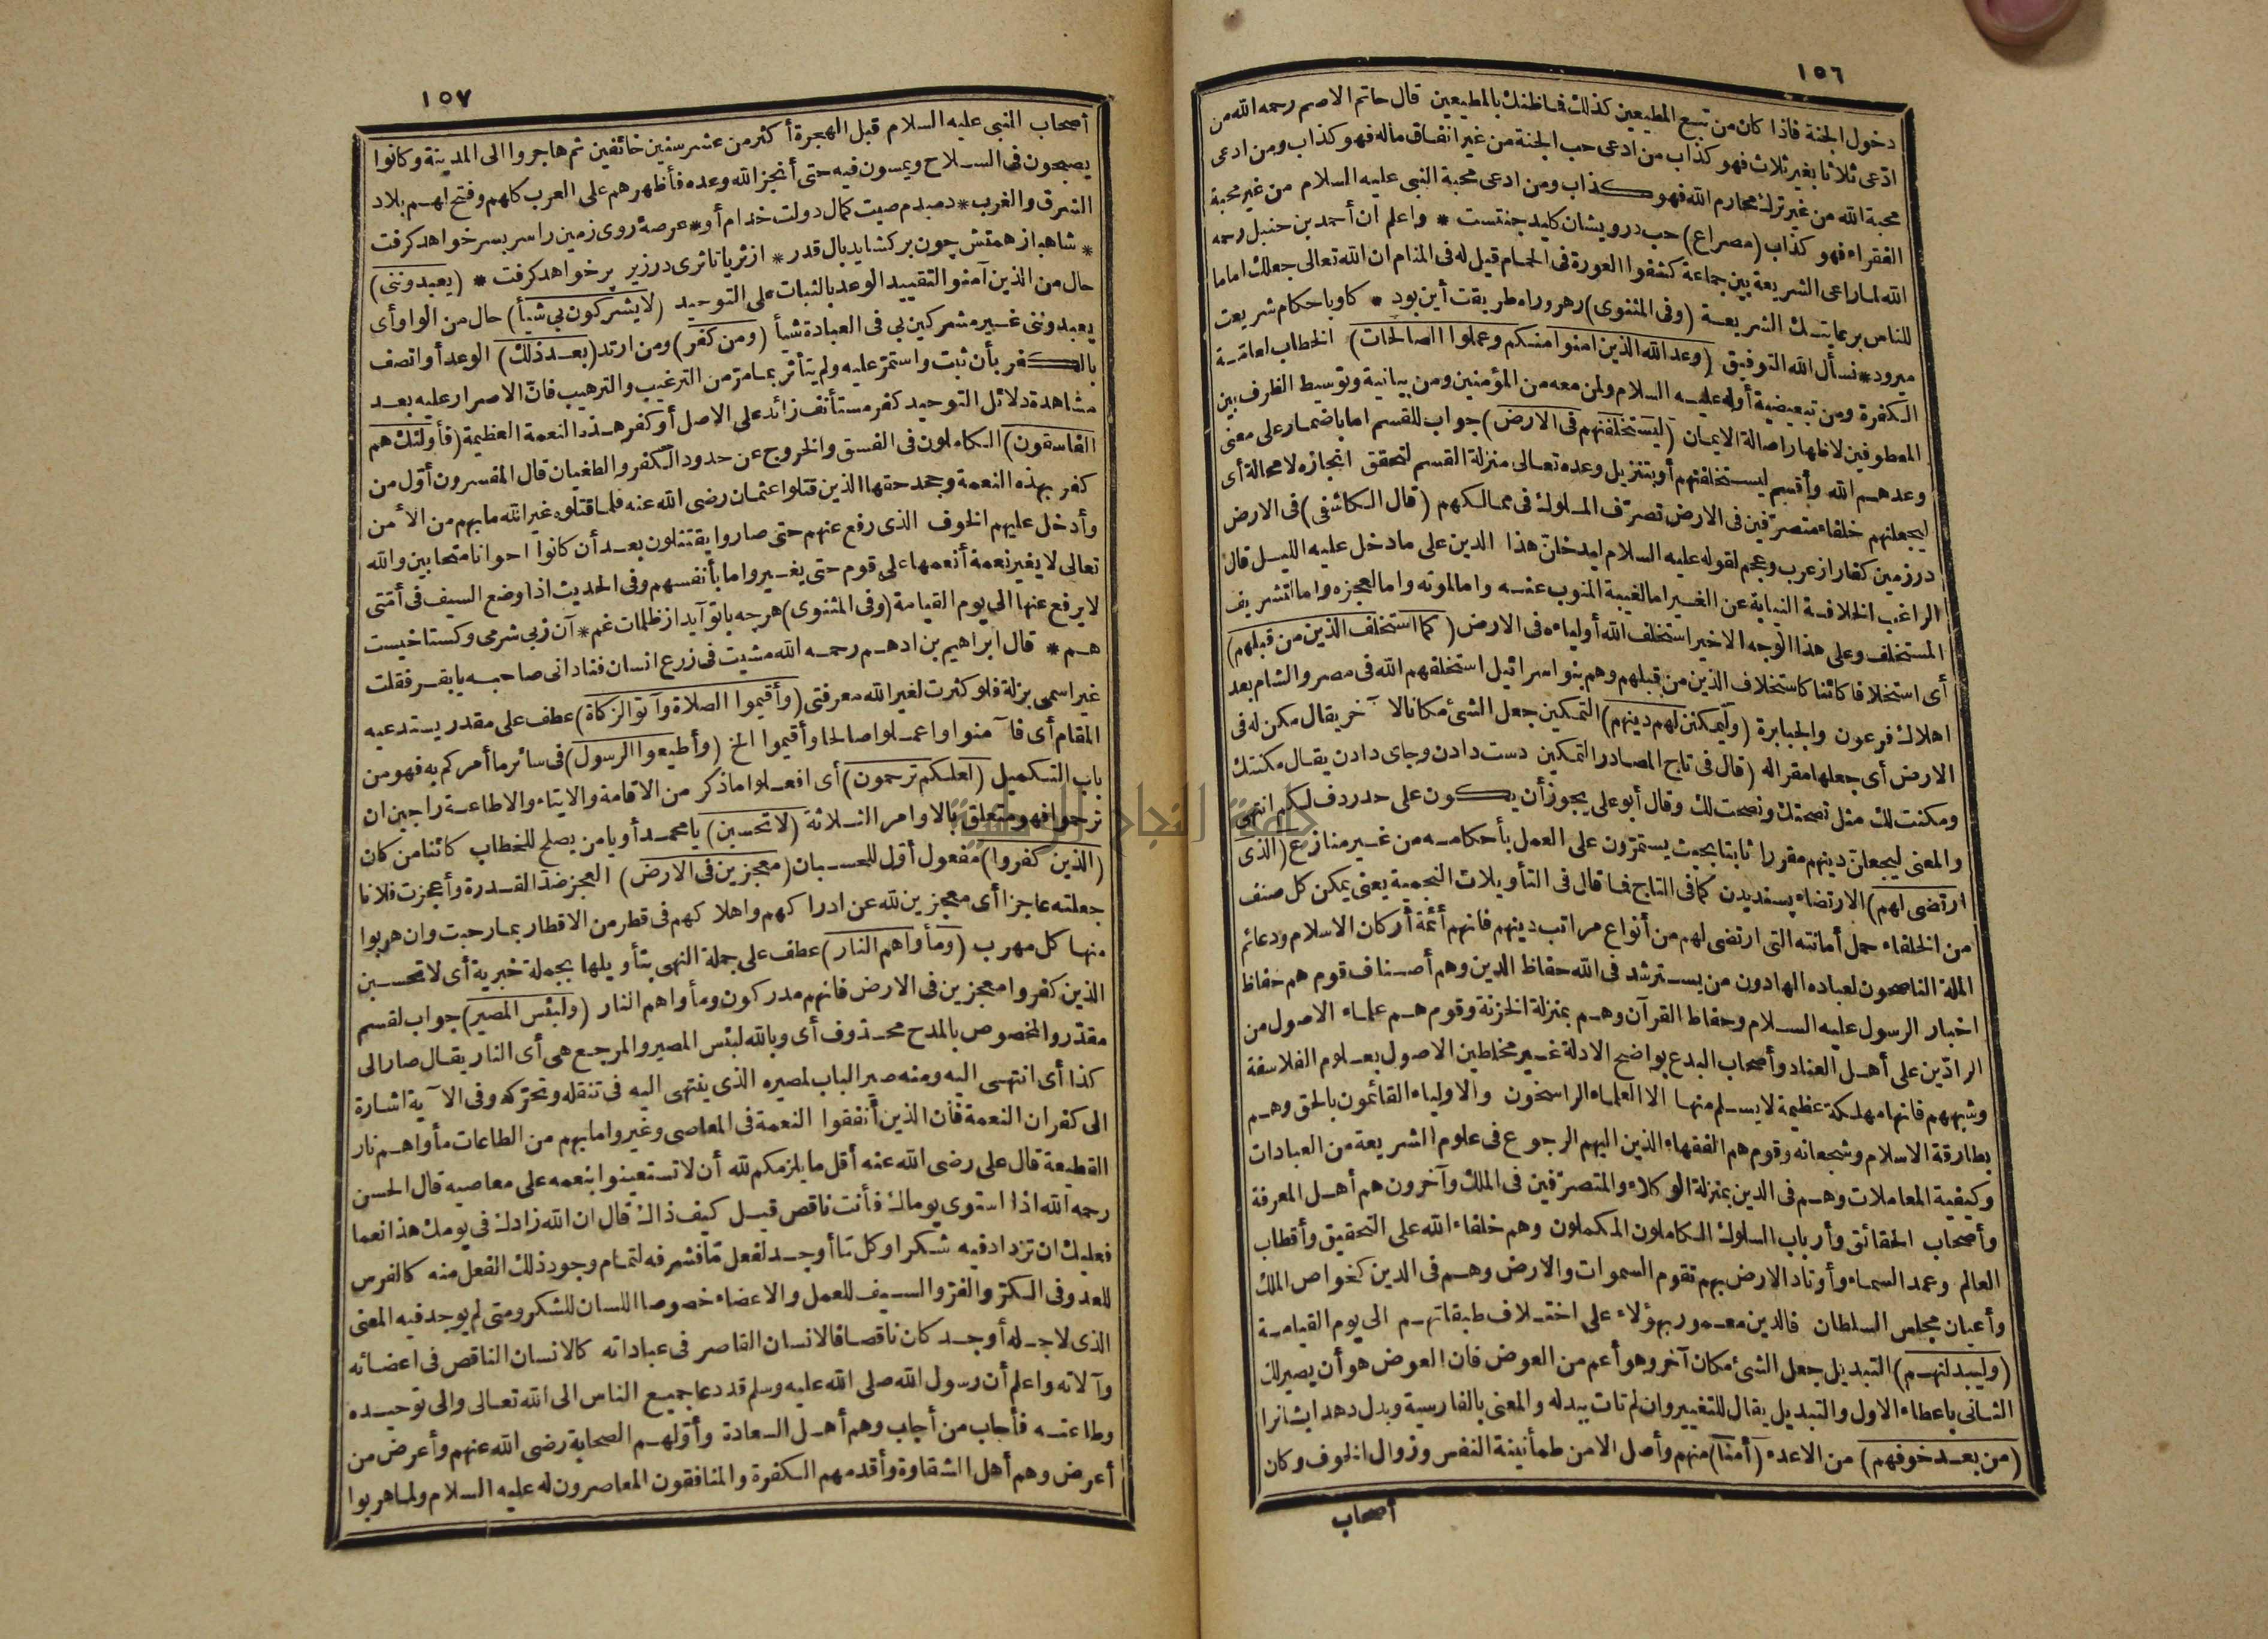 ١٥٦
دخول الجنة فاذا كان من تبع المطيعين كذلك فما ظنك بالمطيعين قال حاتم الاصم رحمه الله من
ادّعى ثلاثا بغير ثلاث فهو كذاب من ادعى حب الجنة من غير انفاق ماله فهو كذاب ومن ادعى
محبة الله من غير ترك محارم الله فهو كذاب ومن ادعى محبة النبى عليه السلام من غير محبة
الفقراء فهو كذاب (مصراع) حب درويشان كليد جنتست * واعلم ان أحمد بن حنبل رحمه
الله لما راعى الشريعة بين جماعة كشفوا العورة فى الحمام قيل له فى المنام ان الله تعالى جعلك اماما
للناس برعايتك الشريعة (وفى المثنوى) رهرو راه طريقت أين بود * كاو باحكام شريعت
ميرود * نسأل الله التوفيق (وعد الله الذين امنوا منكم وعملوا الصالحات) الخطاب لعامة
الكفرة ومن تبعيضية أو له عليه السلام ولمن معه من المؤمنين ومن بيانية وتوسيط الظرف بين
المعطوفين لاظهار اصالة الايمان (ليستخلفنهم فى الارض) جواب للقسم اما باضمار على معنى
وعدهم الله وأقسم ليستخلفنهم أو بتنزيل وعده تعالى منزلة القسم لتحقق انجازه لا محالة أى
ليجعلنهم خلفاء متصرّفين فى الارض تصرّف الملوك فى ممالكهم (قال الكاشفى) فى الارض
در زمين كفار از عرب وعجم لقوله عليه السلام ليدخلنّ هذا الدين على ما دخل عليه الليل قال
الراغب الخلافة النيابة عن الغير اما لغيبة المنوب عنه واما لموته واما لعجزه واما لتشريف
المستخلف وعلى هذا الوجه الاخير استخلف الله أولياءه فى الارض (كما استخلف الذين من قبلهم)
أى استخلافا كائنا كاستخلاف الذين من قبلهم وهم بنو اسرائيل استخلفهم الله فى مصر والشام بعد
اهلاك فرعون والجبابرة (وليمكنن لهم دينهم) التمكين جعل الشئ مكانا لآخر يقال مكن له فى
الارض أى جعلها مقرا له (قال فى تاج المصادر التمكين دست دادن وجاى دادن يقال مكنتك
ومكنت لك مثل نصحتك ونصحت لك وقال أبو على يجوز أن يكون على حد ردف لكم انتهى
والمعنى ليجعلنّ دينهم مقررا ثابتا بحيث يستمرّون على العمل بأحكامه من غير منازع (الذى
ارتضى لهم) الارتضاء پسنديدن كما فى التاج فما قال فى التأويلات النجمية يعنى يمكن كل صنف
من الخلفاء حمل أمانته التى ارتضى لهم من أنواع مراتب دينهم فانهم أئمة أركان الاسلام ودعائم
الملة الناصحون لعباده الهادون من يسترشد فى الله حفاظ الدين وهم أصناف قوم هم حفاظ
اخبار الرسول عليه السلام وحفاظ القرآن وهم بمنزلة الخزنة وقوم هم علماء الاصول من
الرادّين على أهل العناد وأصحاب البدع بواضح الادلة غير مخلطين الاصول بعلوم الفلاسفة
وشبههم فانها مهلكة عظيمة لا يسلم منها الا العلماء الراسخون والاولياء القائمون بالحق وهم
بطارقة الاسلام وشجعانه وقوم هم الفقهاء الذين اليهم الرجوع فى علوم الشريعة من العبادات
وكيفية المعاملات وهم فى الدين بمنزلة الوكلاء والمتصرّفين فى الملك وآخرون هم أهل المعرفة
وأصحاب الحقائق وأرباب السلوك الكاملون المكملون وهم خلفاء الله على التحقيق وأقطاب
العالم وعمد السماء وأوتاد الارض بهم تقوم السموات والارض وهم فى الدين كخواص الملك
وأعيان مجلس السلطان فالدين معمور بهؤلاء على اختلاف طبقاتهم الى يوم القيامة
(وليبدلنهم) التبديل جعل الشئ مكان آخر وهو أعم من العوض فان العوض هو أن يصير لك
الثانى باعطاء الاول والتبديل يقال للتغيير وان لم تات ببدله والمعنى بالفارسية وبدل دهد ايشانرا
(من بعد خوفهم) من الاعداء (أمنا) منهم وأصل الامن طمأنينة النفس وزوال الخوف وكان
أصحاب
١٥٧
أصحاب النبى عليه السلام قبل الهجرة أكثر من عشر سنين خائفين ثم هاجروا الى المدينة وكانوا
يصبحون فى السلاح ويمسون فيه حتى أنجز الله وعده فأظهرهم على العرب كلهم وفتح لهم بلاد
الشرق والغرب * دمبدم صيت كمال دولت خدام أو * عرصهٔ روى زمين را سر بسر خواهد كرفت
* شاهباز همتش چون بركشايد بال قدر * از ثريا تا ثرى در زير پر خواهد كرفت * (يعبدوننى)
حال من الذين آمنوا لتقييد الوعد بالثبات على التوحيد (لا يشركون بى شيأ) حال من الواو أى
يعبدوننى غير مشركين بى فى العبادة شيأ (ومن كفر) ومن ارتد (بعد ذلك) الوعد أو اتصف
بالكفر بأن ثبت واستمرّ عليه ولم يتأثر بما مرّ من الترغيب والترهيب فانّ الاصرار عليه بعد
مشاهدة دلائل التوحيد كفر مستأنف زائد على الاصل أو كفر هذه النعمة العظيمة (فأولئك هم
الفاسقون) الكاملون فى الفسق والخروج عن حدود الكفر والطغيان قال المفسرون أوّل من
كفر بهذه النعمة وجحد حقها الذين قتلوا عثمان رضى الله عنه فلما قتلوه غير الله ما بهم من الأمن
وأدخل عليهم الخوف الذى رفع عنهم حتى صاروا يقتتلون بعد أن كانوا اخوانا متحابين والله
تعالى لا يغير نعمة أنعمها على قوم حتى يغيروا ما بأنفسهم وفى الحديث اذا وضع السيف فى أمّتى
لا يرفع عنها الى يوم القيامة (وفى المثنوى) هرچه با تو آيد از ظلمات غم * آن ز بى شرمى وكستاخيست
هم * قال ابراهيم بن ادهم رحمه الله مشيت فى زرع انسان فنادانى صاحبه يا بقر فقلت
غير اسمى بزلة فلو كثرت لغير الله معرفتى (وأقيموا الصلاة وآتوا الزكاة) عطف على مقدر يستدعيه
المقام أى فآمنوا واعملوا صالحا وأقيموا الخ (وأطيعوا الرسول) فى سائر ما أمركم به فهو من
باب التكميل (لعلكم ترحمون) أى افعلوا ما ذكر من الاقامة والايتاء والاطاعة راجين ان
ترحموا فهو متعلق بالاوامر الثلاثة (لا تحسبن) يا محمد أو يا من يصلح للخطاب كائنا من كان
(الذين كفروا) مفعول أوّل للحسبان (معجزين فى الارض) العجز ضدّ القدرة وأعجزت فلانا
جعلته عاجزا أى معجزين لله عن ادراكهم واهلاكهم فى قطر من الاقطار بما رحبت وان هربوا
منها كل مهرب (ومأواهم النار) عطف على جملة النهى بتأويلها بجملة خبرية أى لا تحسبن
الذين كفروا معجزين فى الارض فانهم مدركون ومأواهم النار (ولبئس المصير) جواب لقسم
مقدّر والمخصوص بالمدح محذوف أى وبالله لبئس المصير والمرجع هى أى النار يقال صار الى
كذا أى انتهى اليه ومنه صير الباب لمصيره الذى ينتهى اليه فى تنقله وتحرّكه وفى الآية اشارة
الى كفران النعمة فان الذين أنفقوا النعمة فى المعاصى وغيروا ما بهم من الطاعات مأواهم نار
القطيعة قال على رضى الله عنه أقل ما يلزمكم لله أن لا تستعينوا بنعمه على معاصيه قال الحسن
رحمه الله اذا استوى يوماك فأنت ناقص قيل كيف ذاك قال ان الله زادك فى يومك هذا نعما
فعليك ان تزداد فيه شكرا وكل ما أوجد لفعل مّا فشرفه لتمام وجود ذلك الفعل منه كالفرس
للعدو فى الكرّ والفرّ والسيف للعمل والاعضاء خصوصا اللسان للشكر ومتى لم يوجد فيه المعنى
الذى لاجله أوجد كان ناقصا فالانسان القاصر فى عباداته كالانسان الناقص فى اعضائه
وآلاته واعلم أن رسول الله صلى الله عليه وسلم قد دعا جميع الناس الى الله تعالى والى توحيده
وطاعته فأجاب من أجاب وهم أهل السعادة وأوّلهم الصحابة رضى الله عنهم وأعرض من
أعرض وهم أهل الشقاوة وأقدمهم الكفرة والمنافقون المعاصرون له عليه السلام ولما هربوا